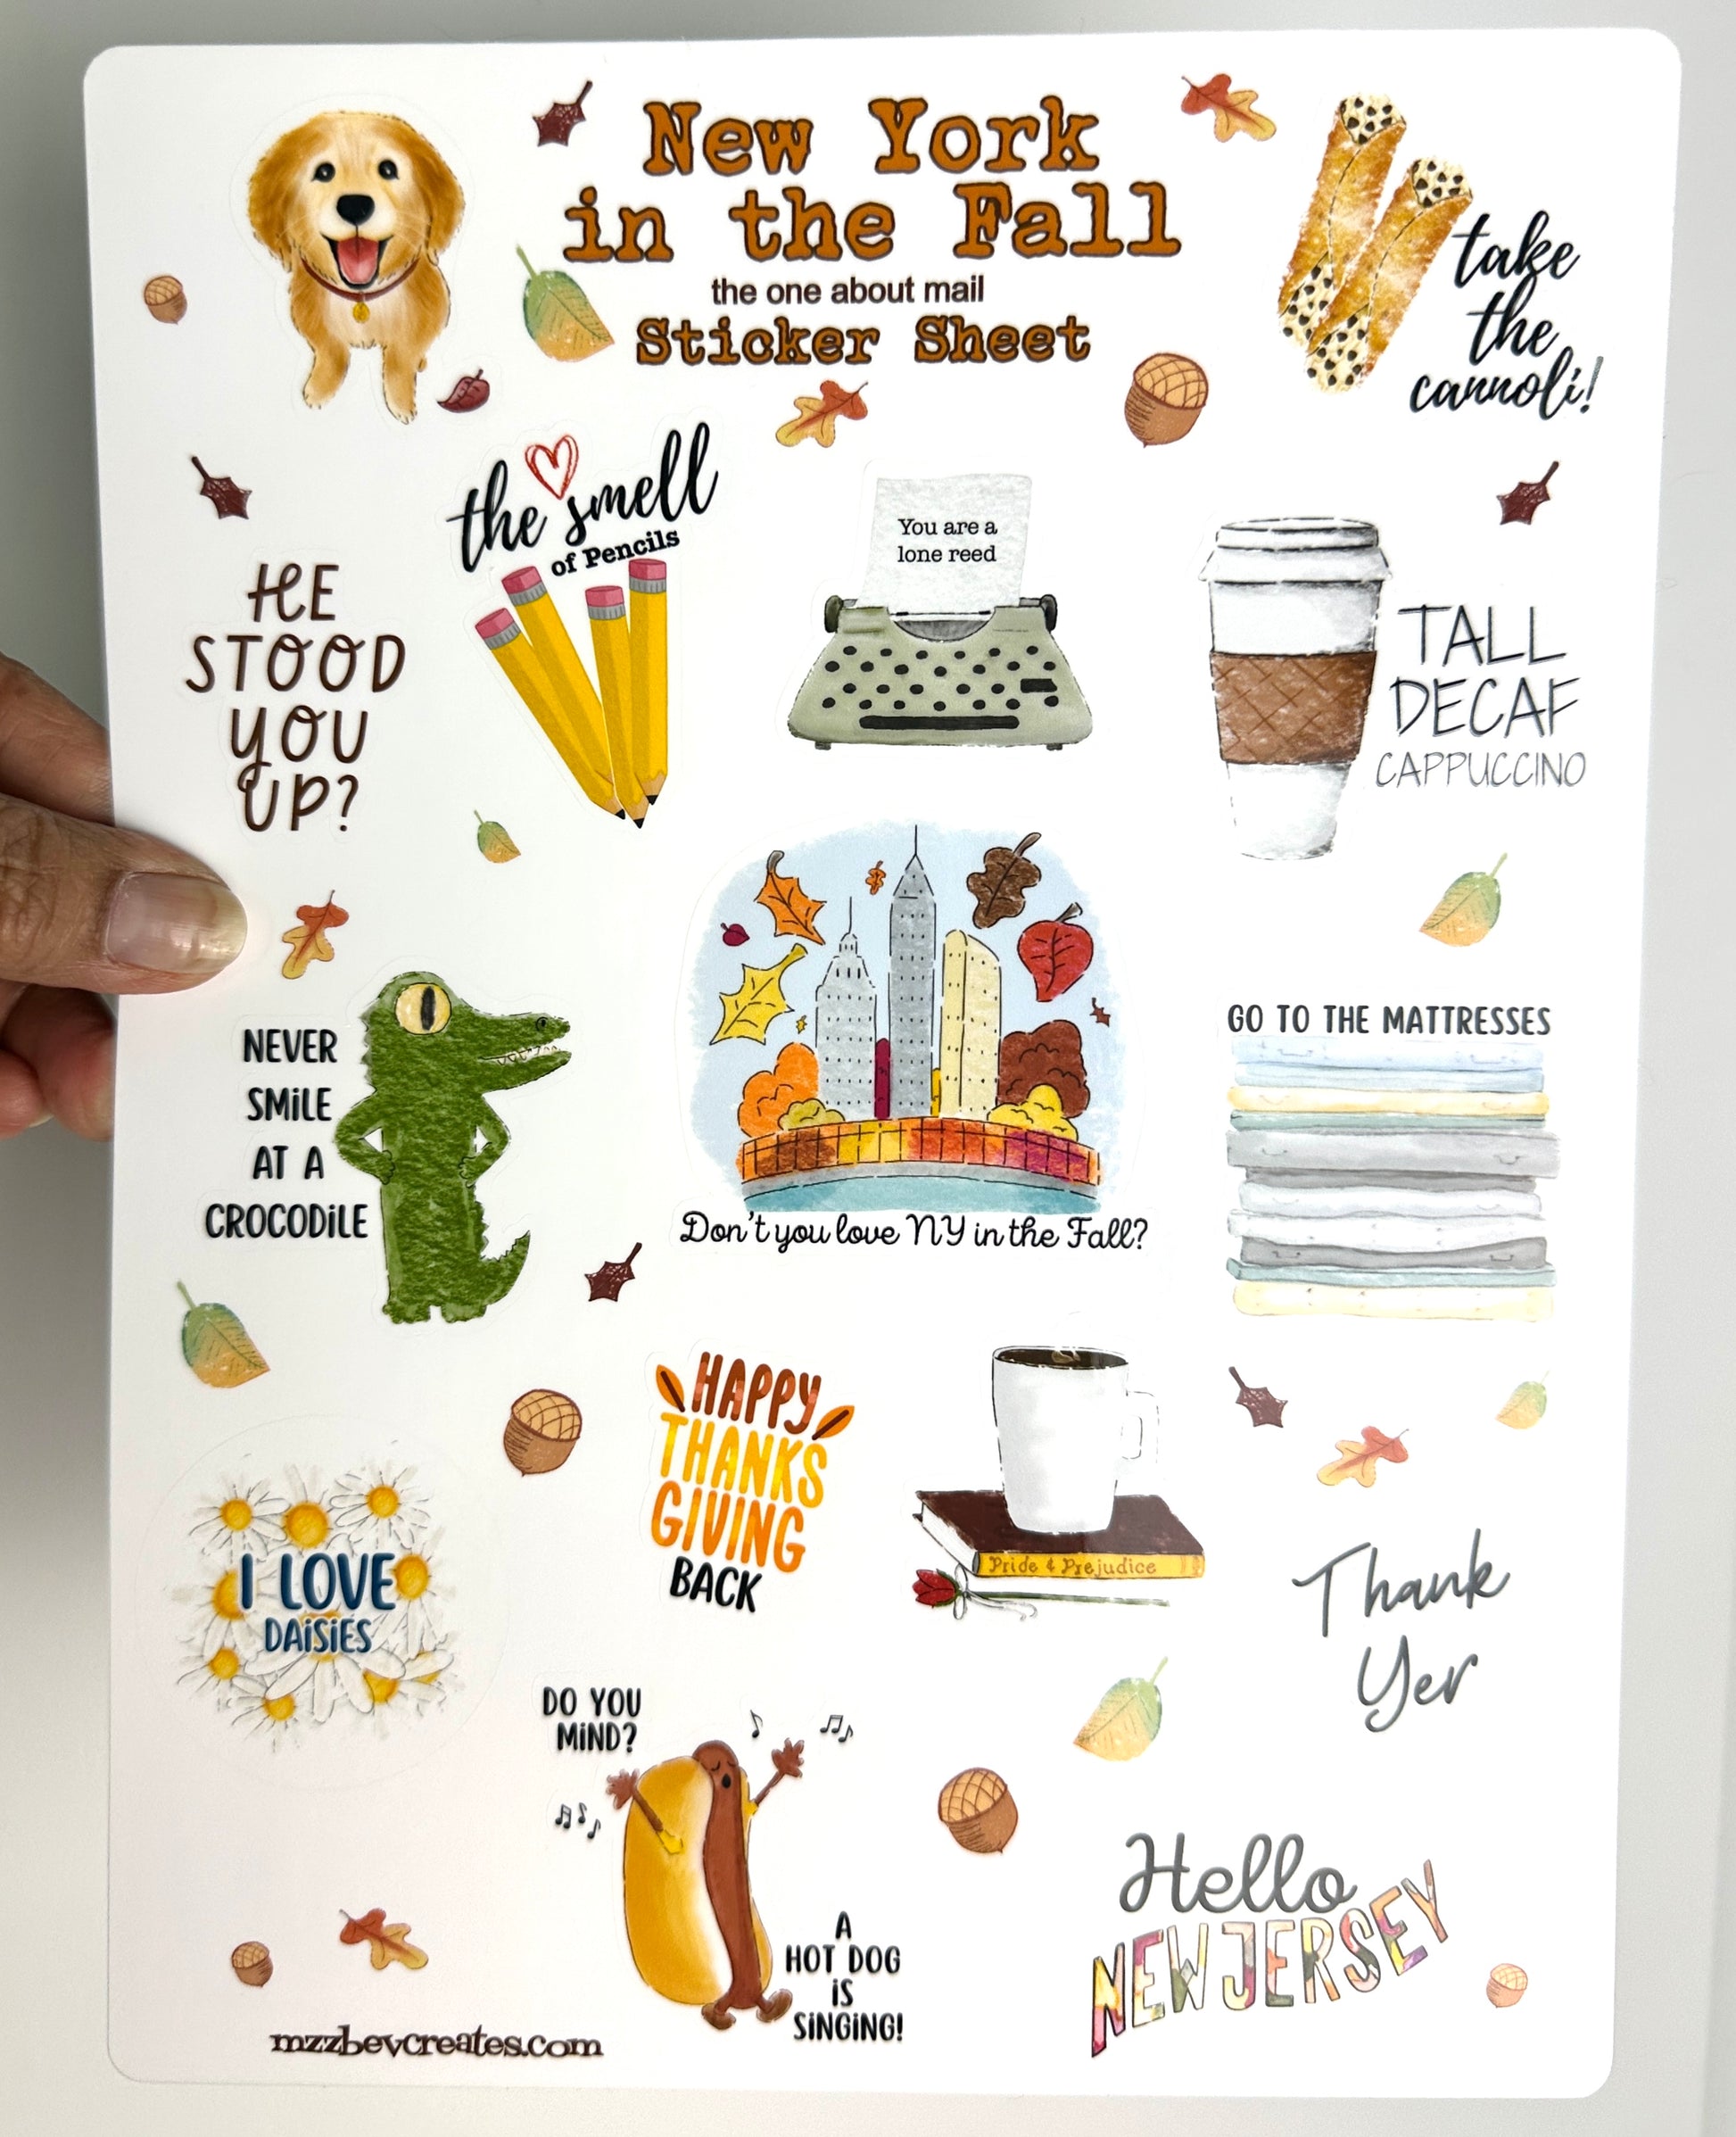 New York
in the Fall
the one about mail
Sticker Sheet
take
the
cannoli!
the smell
of Pencils
You are a
lone reed
HE
STOOD
YOU
UP?
TALL
DECAF
CAPPUCCINO
NEVER
SMiLE
AT A
CROCODiLE
Don't you love NY in the Fall?
GO TO THE MATTRESSES
HAPPY
THANKS
GIVING
BACK
Pride & Prejudice
I LOVE
DAiSiES
Thank
Yer
DO YOU
MiND?
A
HOT DOG
iS
SiNGiNG!
Hello
NEW JERSEY
mzzbevcreates.com